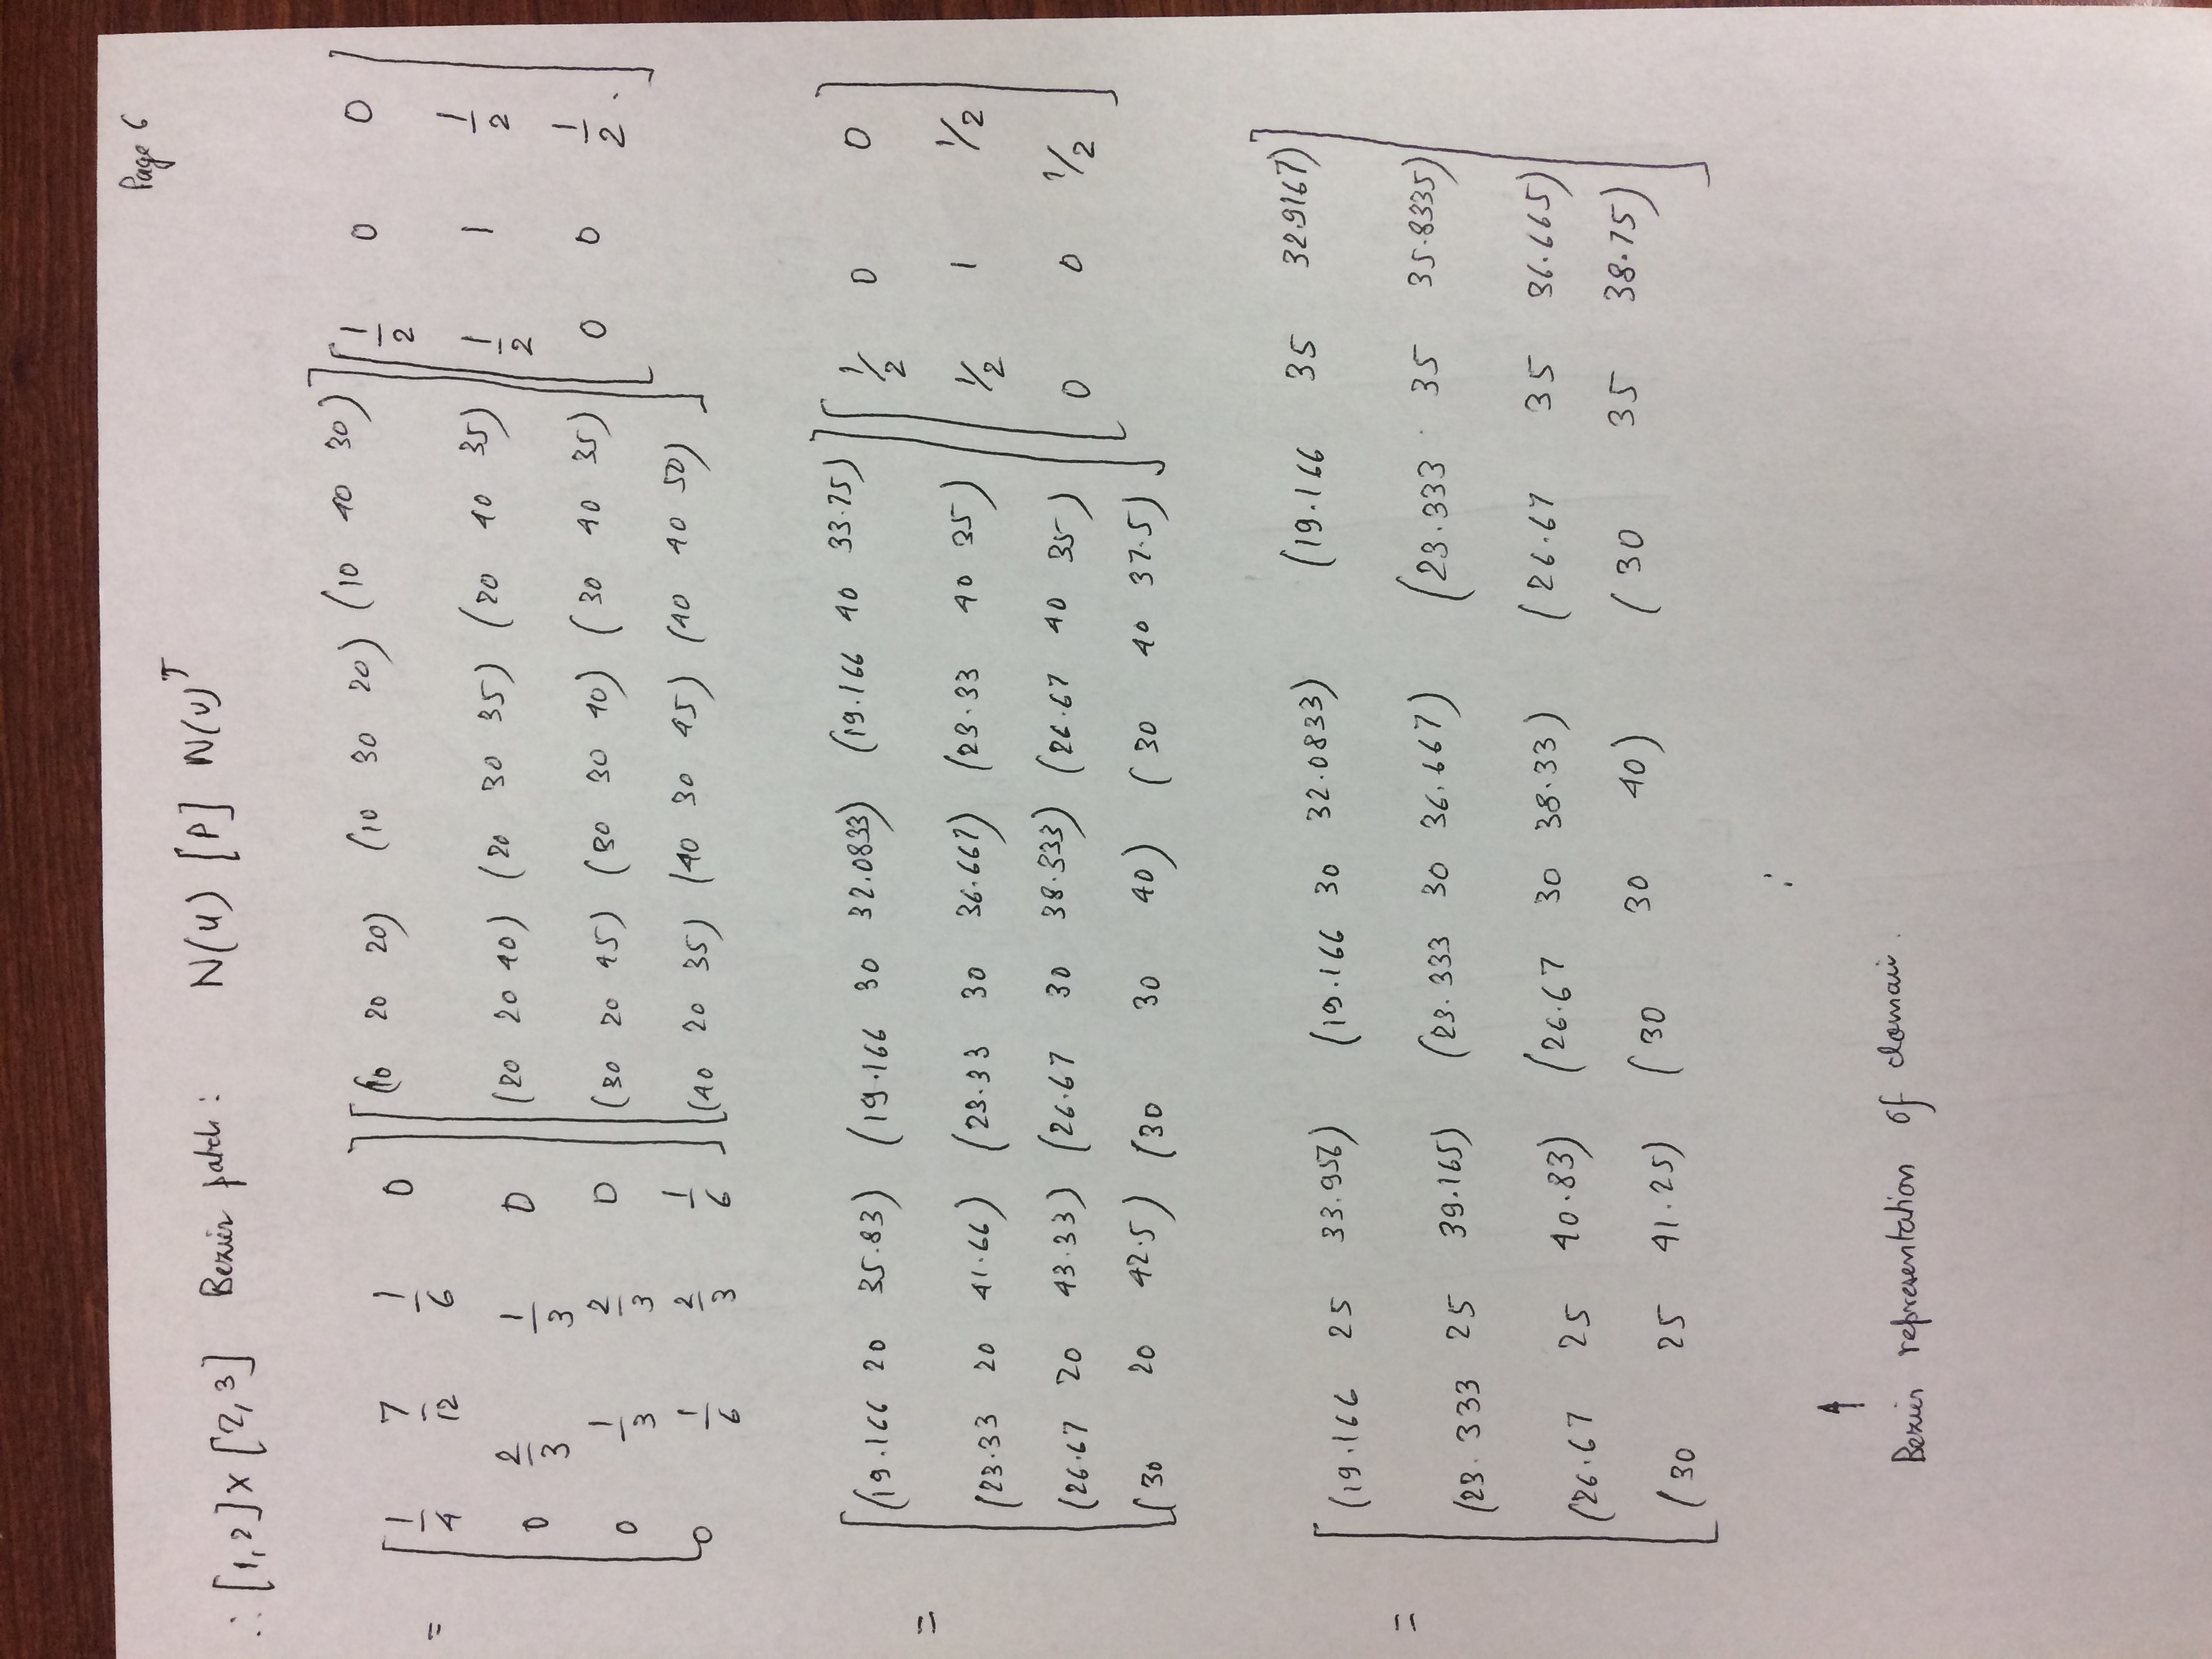 Page 6
∴ [1,2] x [2,3] Bezier patch : N(u) [P] N(v)^T
= [ 1/4 7/12 1/6 0 ] [ (10 20 20) (10 30 20) (10 40 30) ] [ 1/2 0 0 ]
[ 0 2/3 1/3 0 ] [ (20 20 40) (20 30 35) (20 40 35) ] [ 1/2 1 1/2 ]
[ 0 1/3 2/3 0 ] [ (30 20 45) (30 30 40) (30 40 35) ] [ 0 0 1/2 . ]
[ 0 1/6 2/3 1/6 ] [ (40 20 35) (40 30 45) (40 40 50) ]
= [ (19.166 20 35.83) (19.166 30 32.0833) (19.166 40 33.75) ] [ 1/2 0 0 ]
[ (23.33 20 41.66) (23.33 30 36.667) (23.33 40 35) ] [ 1/2 1 1/2 ]
[ (26.67 20 43.33) (26.67 30 38.333) (26.67 40 35) ] [ 0 0 1/2 ]
[ (30 20 42.5) (30 30 40) (30 40 37.5) ]
= [ (19.166 25 33.956) (19.166 30 32.0833) (19.166 35 32.9167) ]
[ (23.333 25 39.165) (23.333 30 36.667) (23.333 35 35.8335) ]
[ (26.67 25 40.83) (26.67 30 38.33) (26.67 35 36.665) ]
[ (30 25 41.25) (30 30 40) (30 35 38.75) ]
↑
Bezier representation of domain.